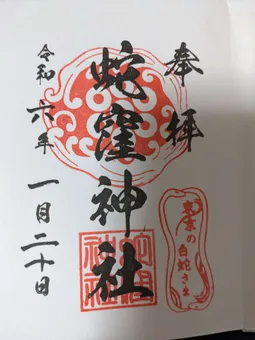 奉拝
蛇窪神社
令和六年
一月二十日
東京の白蛇さま
蛇窪神社